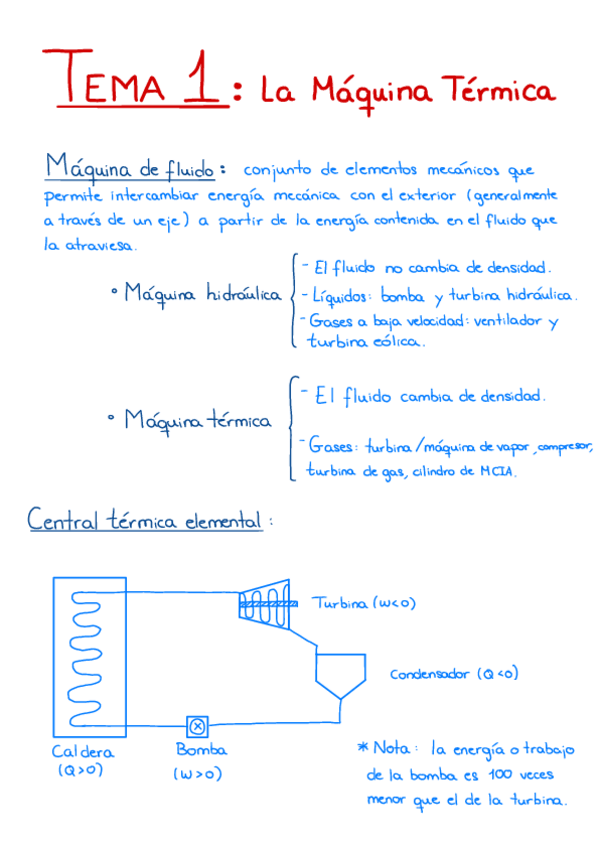 TEMA 1: La Máquina Térmica
Máquina de fluido: conjunto de elementos mecánicos que
permite intercambiar energía mecánica con el exterior (generalmente
a través de un eje) a partir de la energía contenida en el fluido que
la atraviesa.
• Máquina hidráulica
- El fluido no cambia de densidad.
- Líquidos: bomba y turbina hidráulica.
- Gases a baja velocidad: ventilador y
turbina eólica.
• Máquina térmica
- El fluido cambia de densidad.
- Gases: turbina/máquina de vapor, compresor,
turbina de gas, cilindro de MCIA.
Central térmica elemental:
Turbina (W<0)
Condensador (Q<0)
Caldera
(Q>0)
Bomba
(W>0)
* Nota: la energía o trabajo
de la bomba es 100 veces
menor que el de la turbina.